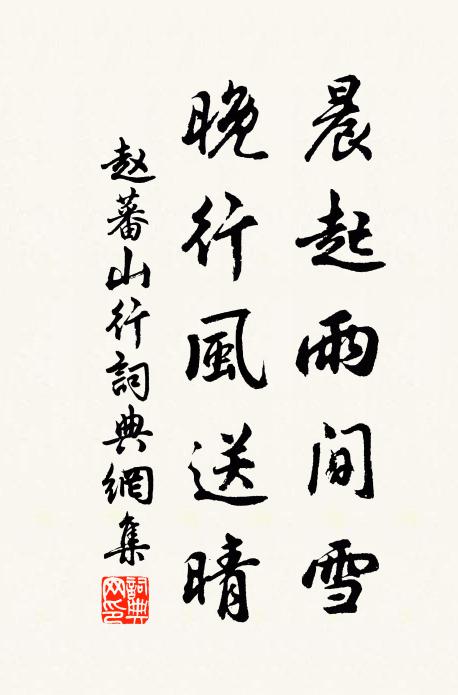 晨起雨间雪
晚行風送晴
赵蕃山行詞典網集
詞典网印